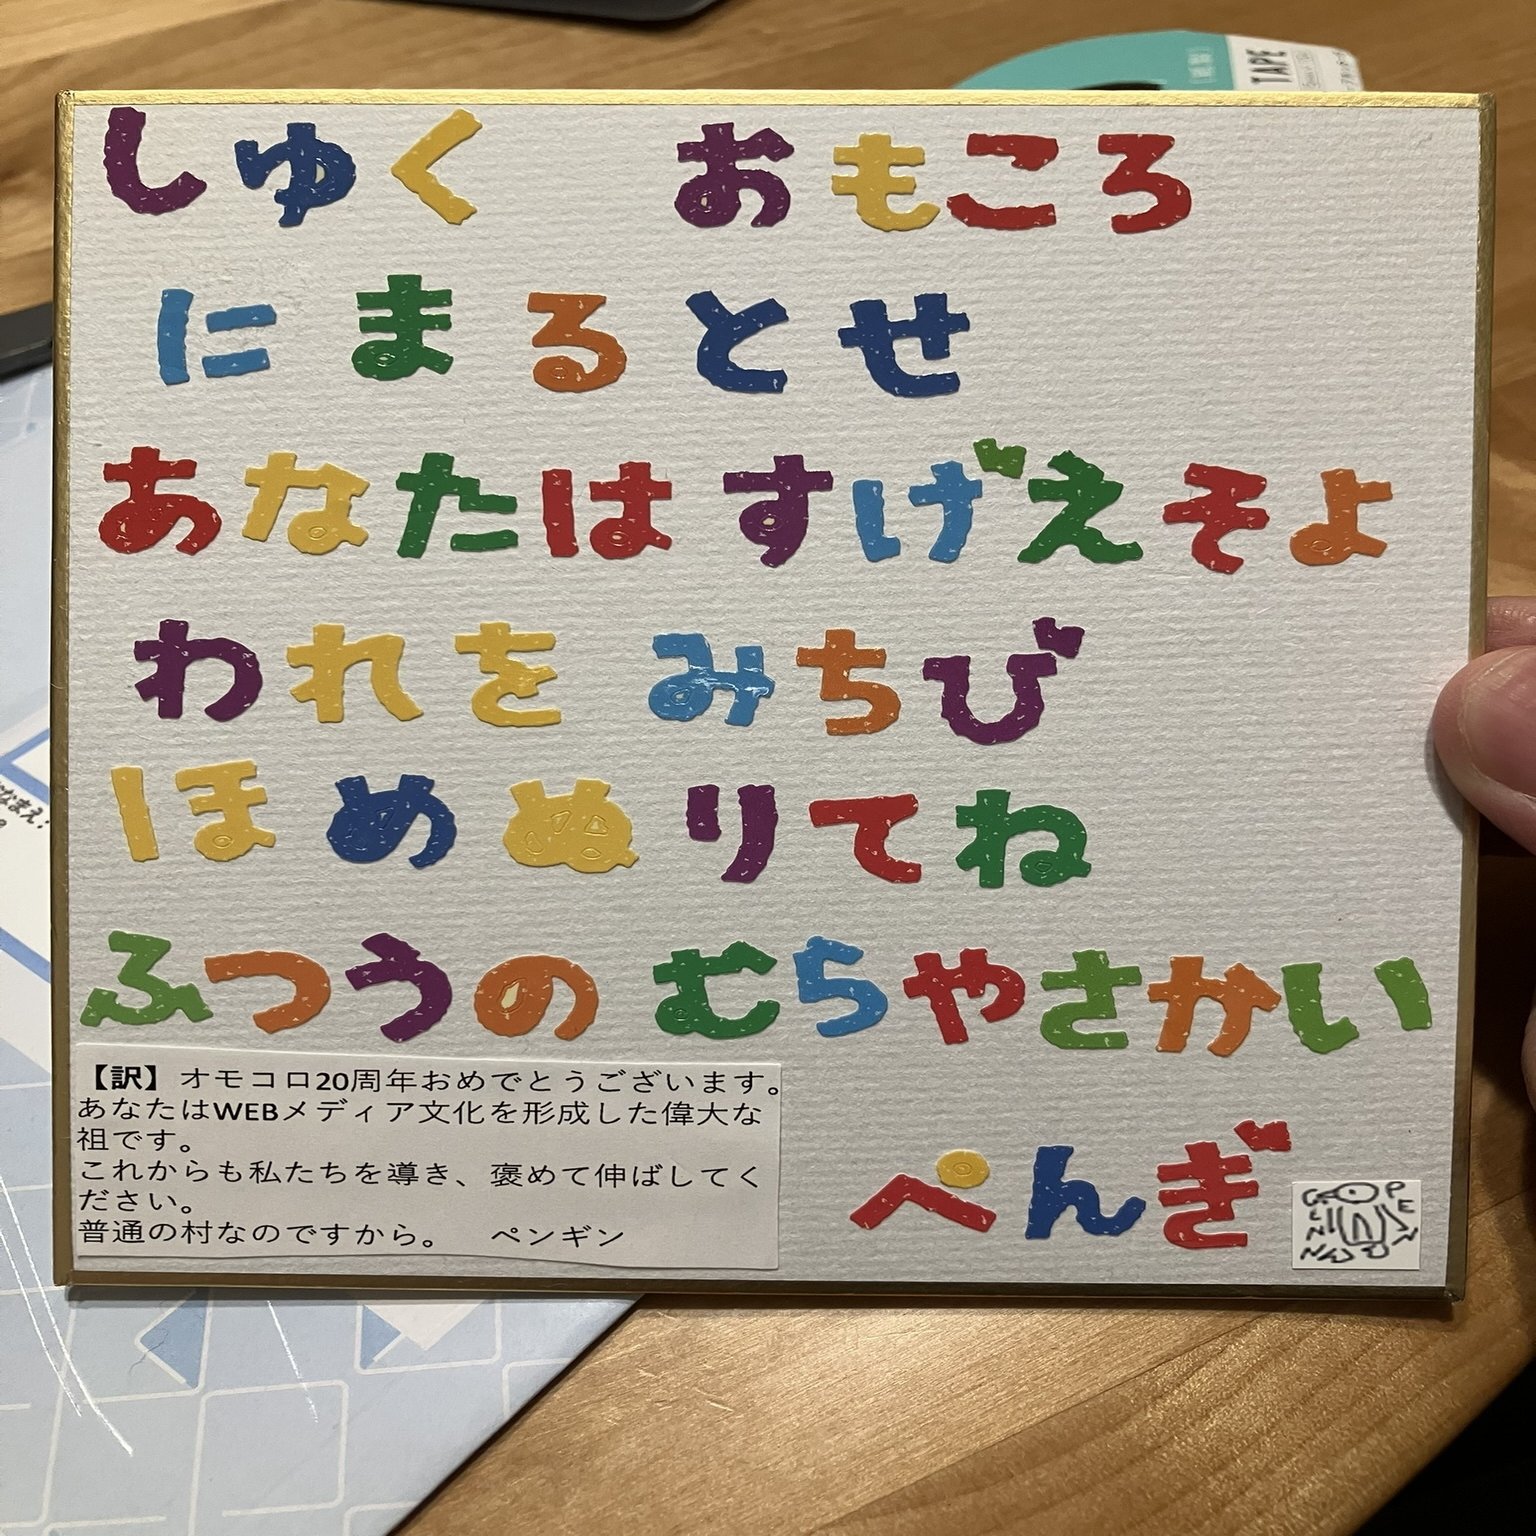 TAPE
しゅく おもころ
にまるとせ
あなたは すげえそよ
われを みちび
ほめぬりてね
ふつうの むらやさかい
【訳】オモコロ20周年おめでとうございます。
あなたはWEBメディア文化を形成した偉大な
祖です。
これからも私たちを導き、褒めて伸ばしてく
ださい。
普通の村なのですから。 ペンギン
ぺんぎ